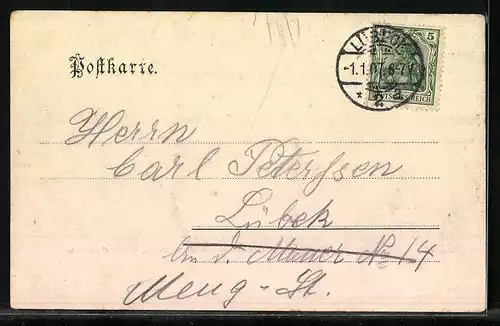 LÜBECK
5
-1.1.07. 6-7
* 2 a
DEUTSCHES REICH
Postkarte.
Herrn
Carl Peterssen
Lübek
An d. Mauer No 14
Meng-St.